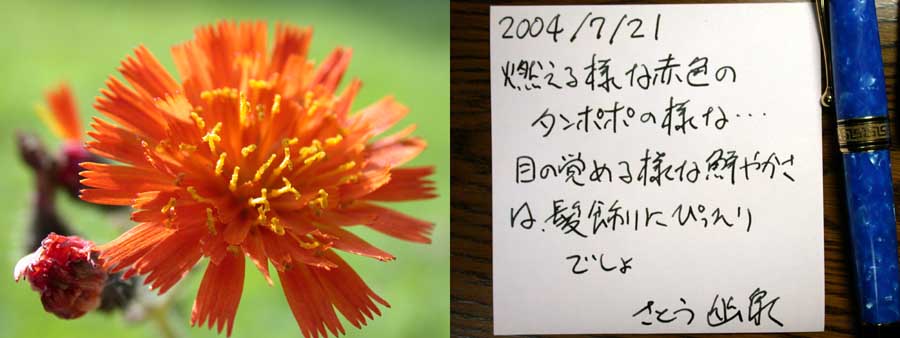 2004/7/21
燃える様な赤色の
タンポポの様な…
目の覚める様な鮮やかさ
は、髪飾りにぴったり
でしょ
さとう